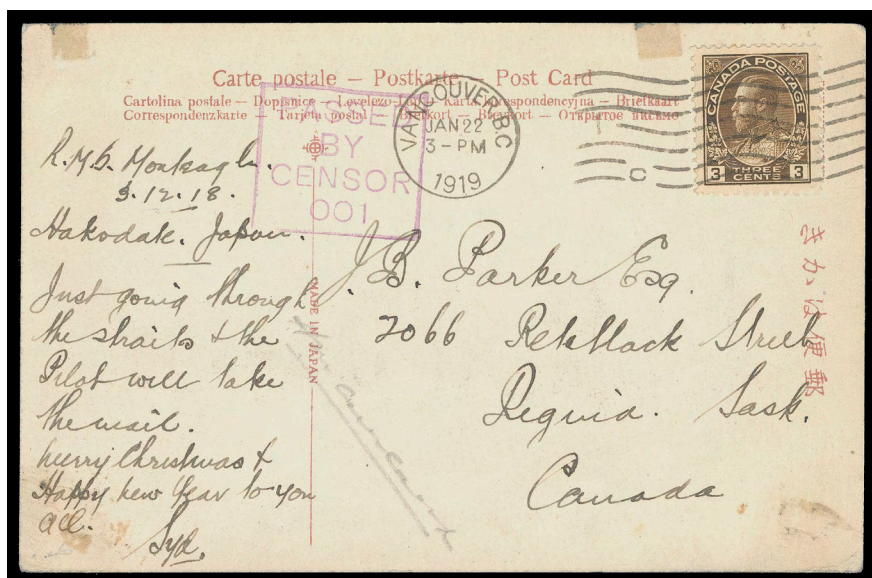 Carte postale — Postkarte — Post Card
Cartolina postale — Dopisnice — Levelezo-Lap — Karta korespondencyjna — Briefkaart
Correspondenzkarte — Tarjeta postal — Brefkort — Brevkort — Открытое письмо
PASSED
BY
CENSOR
001
VANCOUVER, B.C.
JAN 22
3 - PM
1919
C
CANADA POSTAGE
3 THREE CENTS 3
R.M.S. Monteagle.
3.12.18.
Hakodate. Japan.
Just going through
the straits & the
Pilot will take
the mail.
Merry Christmas &
Happy New Year to you
all.
Syd.
MADE IN JAPAN
J. B. Parker Esq.
2066 Retallack Street
Regina. Sask.
Canada
きかは便郵